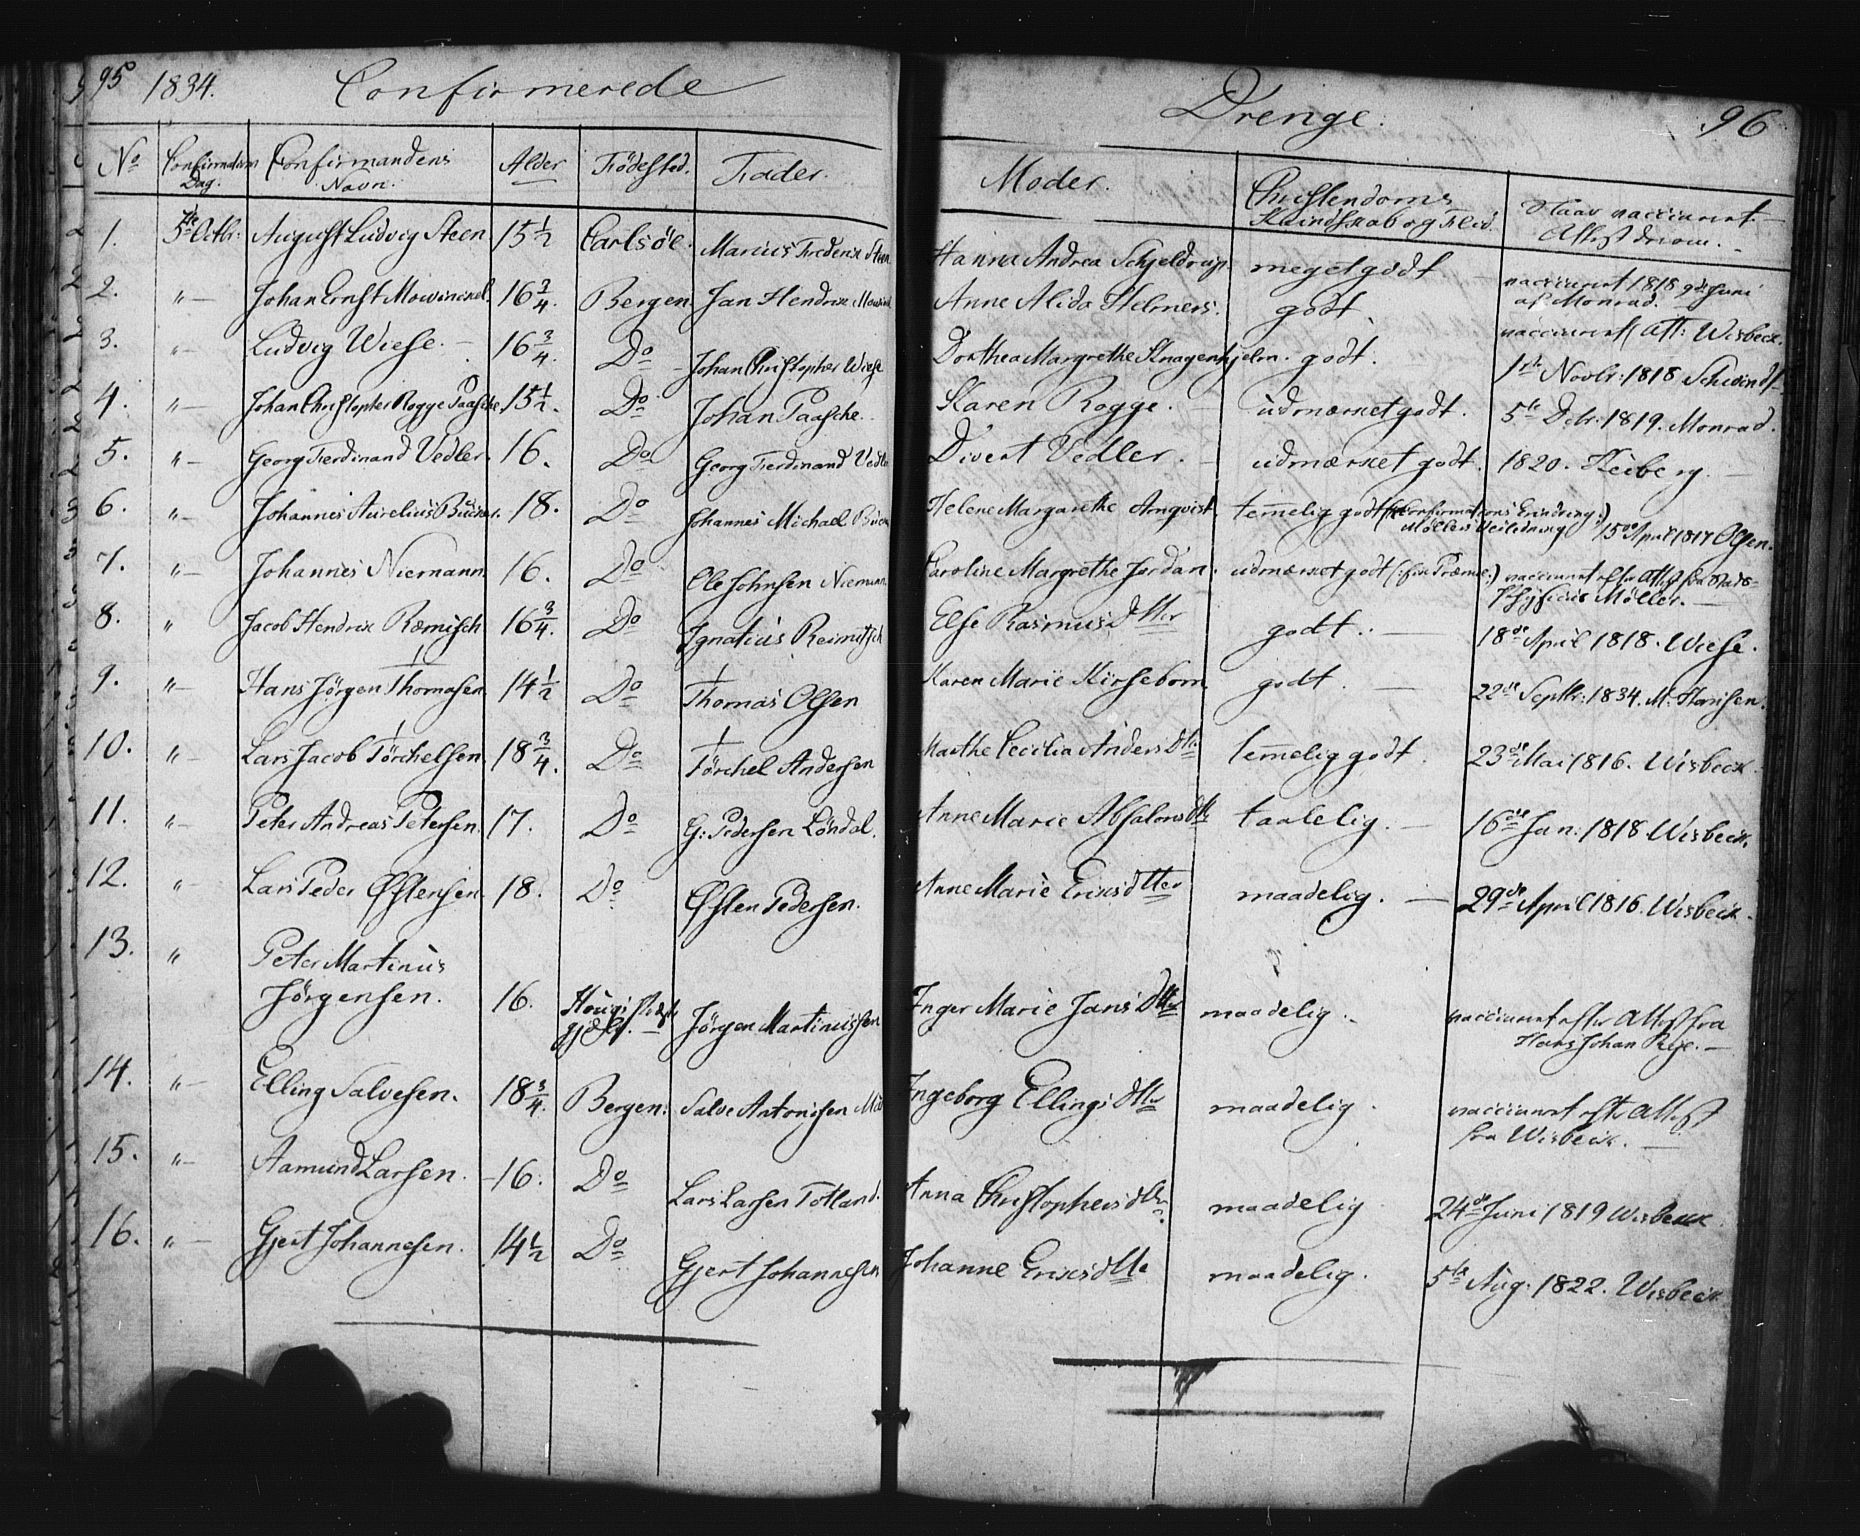 95 1834. Confirmerede
Drenge. 96
No Confirmations Dag. Confirmandens Navn. Alder Fødested. Fader. Moder. Christendoms Kundskab og Flid. Naar vaccineret. Attest derom.
1. 5te Octbr. August Ludvig Steen 15 1/2 Carlsöe. Marius Frederik Steen Hanna Andrea Schjeldrup meget godt vaccineret 1818 9de Juni af Monrad.
2. " Johan Ernst Mowinckel 16 3/4. Bergen Jan Hendrik Mowinckel Anne Alida Helmers. godt. vaccineret Att: Wisbeck.
3. " Ludvig Wiese. 16 3/4. Do Johan Christopher Wiese Dorthea Margrethe Knagenhjelm. godt. 1ste Novbr. 1818 Schwindt
4. " Johan Christopher Rogge Paasche. 15 1/2. Do Johan Paasche. Karen Rogge. udmærket godt. 5te Octr. 1819. Monrad.
5. " Georg Ferdinand Vedler. 16. Do Georg Ferdinand Vedler Divert Vedler. udmærket godt. 1820. Heiberg.
6. " Johannes Aurelius Bücker. 18. Do Johannes Michael Bücker Helene Margarethe Arnqvist temelig godt (: Confirmations Erindring:) Møllers Veiledning 15de April 1817 Olsen.
7. " Johannes Niemann. 16. Do Ole Johnsen Niemann Caroline Margrethe Jordan. udmærket godt (: fik Præmie:) vaccineret efter Attest fra Stads-
Physicus Møller.
8. " Jacob Hendrik Ræmisch 16 3/4. Do Ignatius Reimitsch Else Rasmusdtter godt. 18de April 1818. Wiese.
9. " Hans Jörgen Thomasen 14 1/2 Do Thomas Olsen Karen Marie Kirsebom godt. 22de Septbr: 1834. M: Hansen.
10. " Lars Jacob Törchelsen 18 3/4. Do Törchel Andersen Marthe Cecilia Andersdtr temelig godt. 23de Mai 1816. Wisbeck.
11. " Peter Andreas Petersen. 17. Do G: Pedersen Löndal. Anne Marie Absalonsdtr taalelig. 16de Jan: 1818 Wisbeck.
12. " Lars Peder Østensen 18. Do Østen Pedersen. Anne Marie Eriksdtter maadelig. 29de April 1816. Wisbeck.
13. " Peter Martinus
Jörgensen. 16. Hougs Præste
gjeld. Jörgen Martinussen Inger Marie Jansdtter maadelig. vaccineret efter Attest fra
Hans Johan Rye.
14. " Elling Salvesen. 18 3/4. Bergen. Salve Antonisen Ingeborg Ellingsdtter maadelig. vaccineret efter Attest
fra Wisbeck.
15. " Aamund Larsen. 16. Do Lars Larsen Totland. Anna Christophersdtter. maadelig 24de Juni 1819 Wisbeck
16. " Gjert Johannesen. 14 1/2 Do Gjert Johannesen Johanne Eriksdtte maadelig. 5te Aug. 1822. Wisbeck